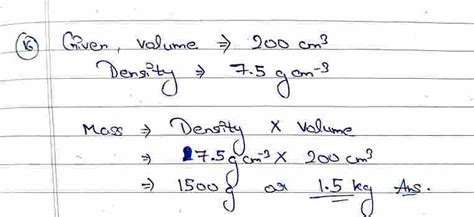 16 Given, volume ⇒ 200 cm³
Density ⇒ 7.5 g cm⁻³
Mass ⇒ Density × volume
⇒ 7.5 g cm⁻³ × 200 cm³
⇒ 1500 g or 1.5 kg Ans.